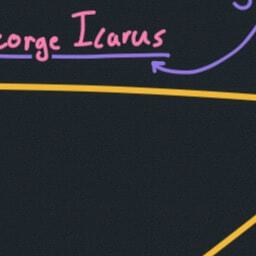 eorge Icarus